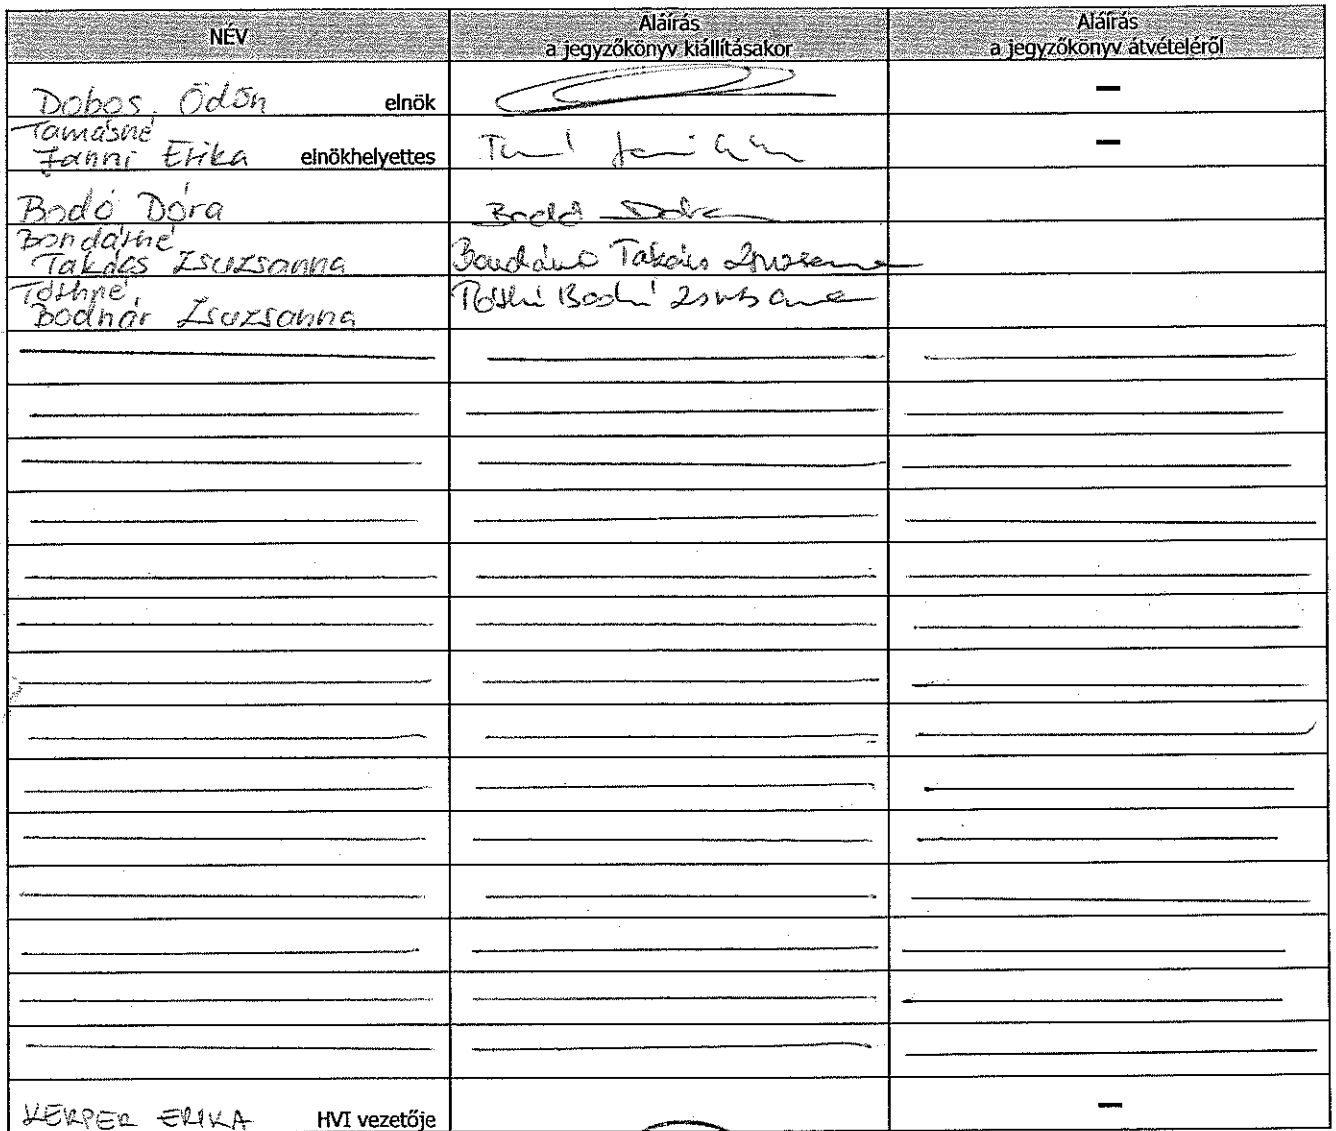 NÉV
Aláírás
a jegyzőkönyv kiállításakor
Aláírás
a jegyzőkönyv átvételéről
Dobos Ödön elnök
—
Tamásné
Janni Erika elnökhelyettes
—
Bodó Dóra
Bodó Dóra
Bondárné
Takács Zsuzsanna
Bondárné Takács Zsuzsanna
Tóthné
Bodnár Zsuzsanna
KERPER ERIKA HVI vezetője
—